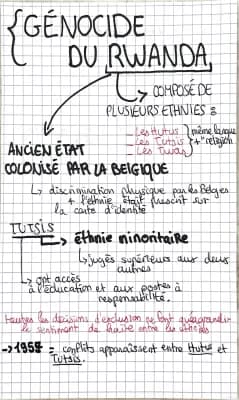 GÉNOCIDE
DU RWANDA
→ COMPOSÉ DE
PLUSIEURS ETHNIES :
- Les Hutus
- Les Tutsis
- Les Twas
même langue
+ religion
ANCIEN ÉTAT
COLONISÉ PAR LA BELGIQUE
↳ discrimination physique par les Belges
+ l'ethnie était présent sur
la carte d'identité
TUTSIS
↳ éthnie minoritaire
↳ jugés supérieurs aux deux
autres
↳ ont accès
à l'éducation et aux postes à
responsabilité.
toutes les décisions d'exclusion ne font qu'agrandir
le sentiment de haine entre les ethnies
→ 1959 = conflits apparaissent entre Hutus et
Tutsis.